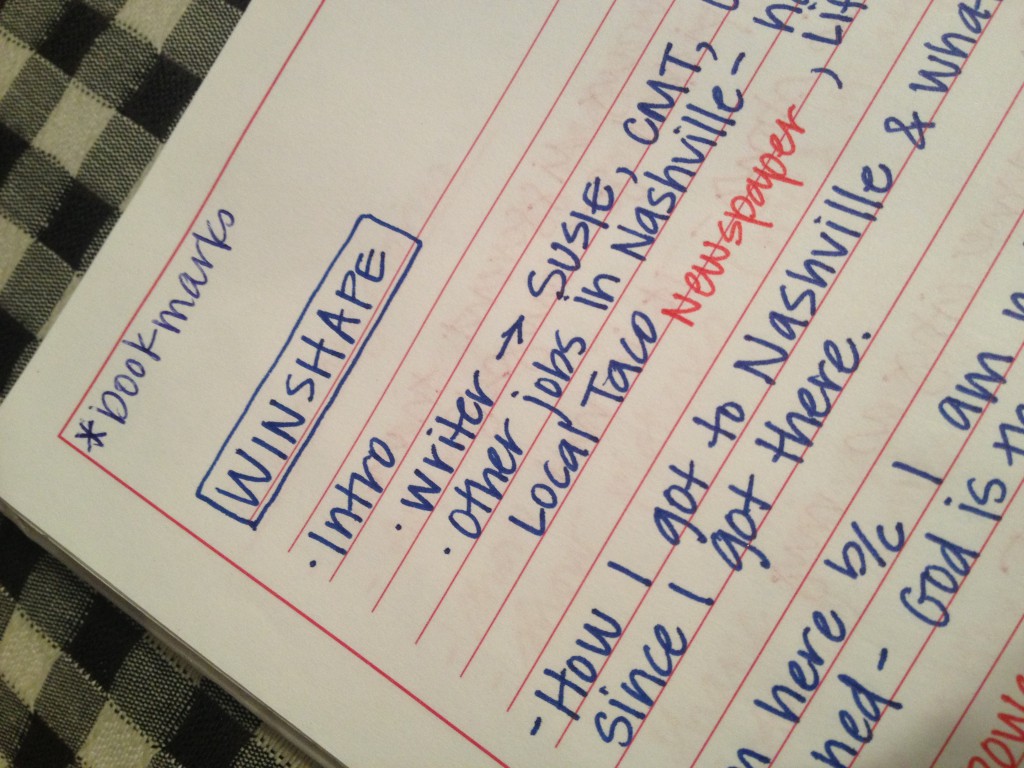 *bookmarks
WINSHAPE
· Intro
· Writer → SUSIE, CMT,
· Other jobs in Nashville-
Local Taco Newspaper, Lif
- How I got to Nashville & wha
since I got there.
here b/c I am
ned - God is